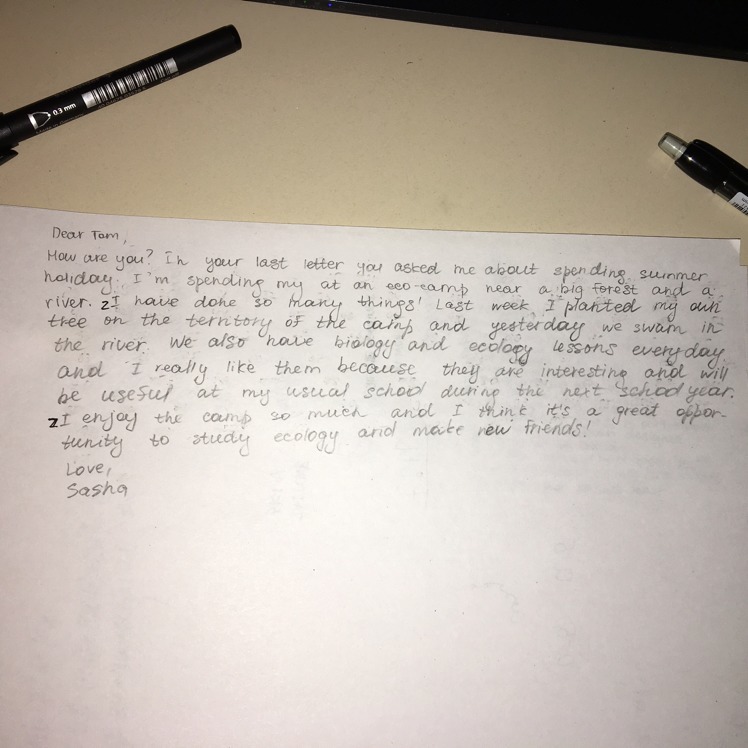 0.3 mm
Dear Tom,
How are you? In your last letter you asked me about spending summer
holiday. I'm spending my at an eco-camp near a big forest and a
river. zI have done so many things! Last week I planted my own
tree on the territory of the camp and yesterday we swam in
the river. We also have biology and ecology lessons every day
and I really like them because they are interesting and will
be useful at my usual school during the next school year.
zI enjoy the camp so much and I think it's a great oppor-
tunity to study ecology and make new friends!
Love,
Sasha